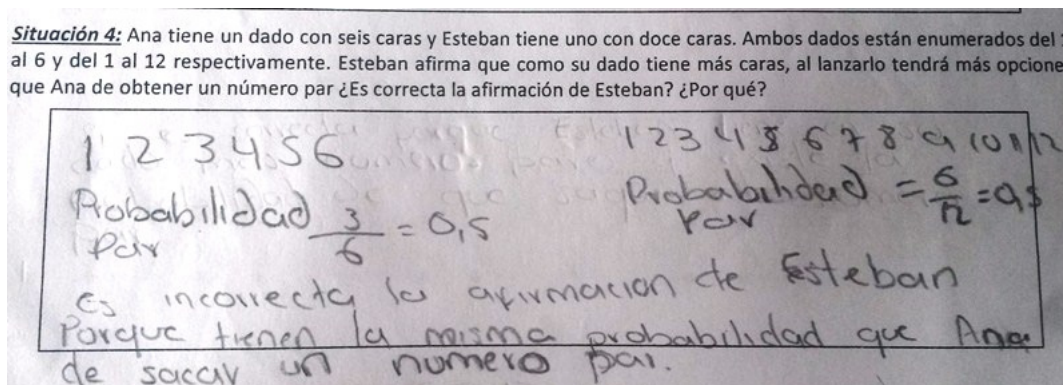 Situación 4: Ana tiene un dado con seis caras y Esteban tiene uno con doce caras. Ambos dados están enumerados del
al 6 y del 1 al 12 respectivamente. Esteban afirma que como su dado tiene más caras, al lanzarlo tendrá más opcione
que Ana de obtener un número par ¿Es correcta la afirmación de Esteban? ¿Por qué?
1 2 3 4 5 6 1 2 3 4 5 6 7 8 9 10 11 12
Probabilidad Par 3/6 = 0,5
Probabilidad Par = 6/12 = 0,5
es incorrecta la afirmacion de Esteban
Porque tienen la misma probabilidad que Ana
de sacar un numero par.